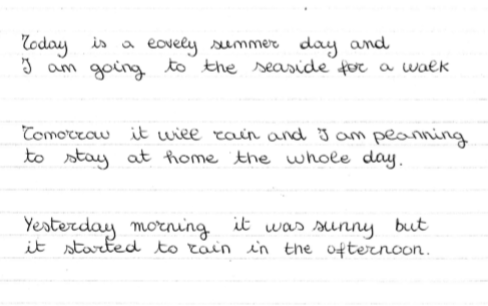 Today is a lovely summer day and
I am going to the seaside for a walk
Tomorrow it will rain and I am planning
to stay at home the whole day.
Yesterday morning it was sunny but
it started to rain in the afternoon.